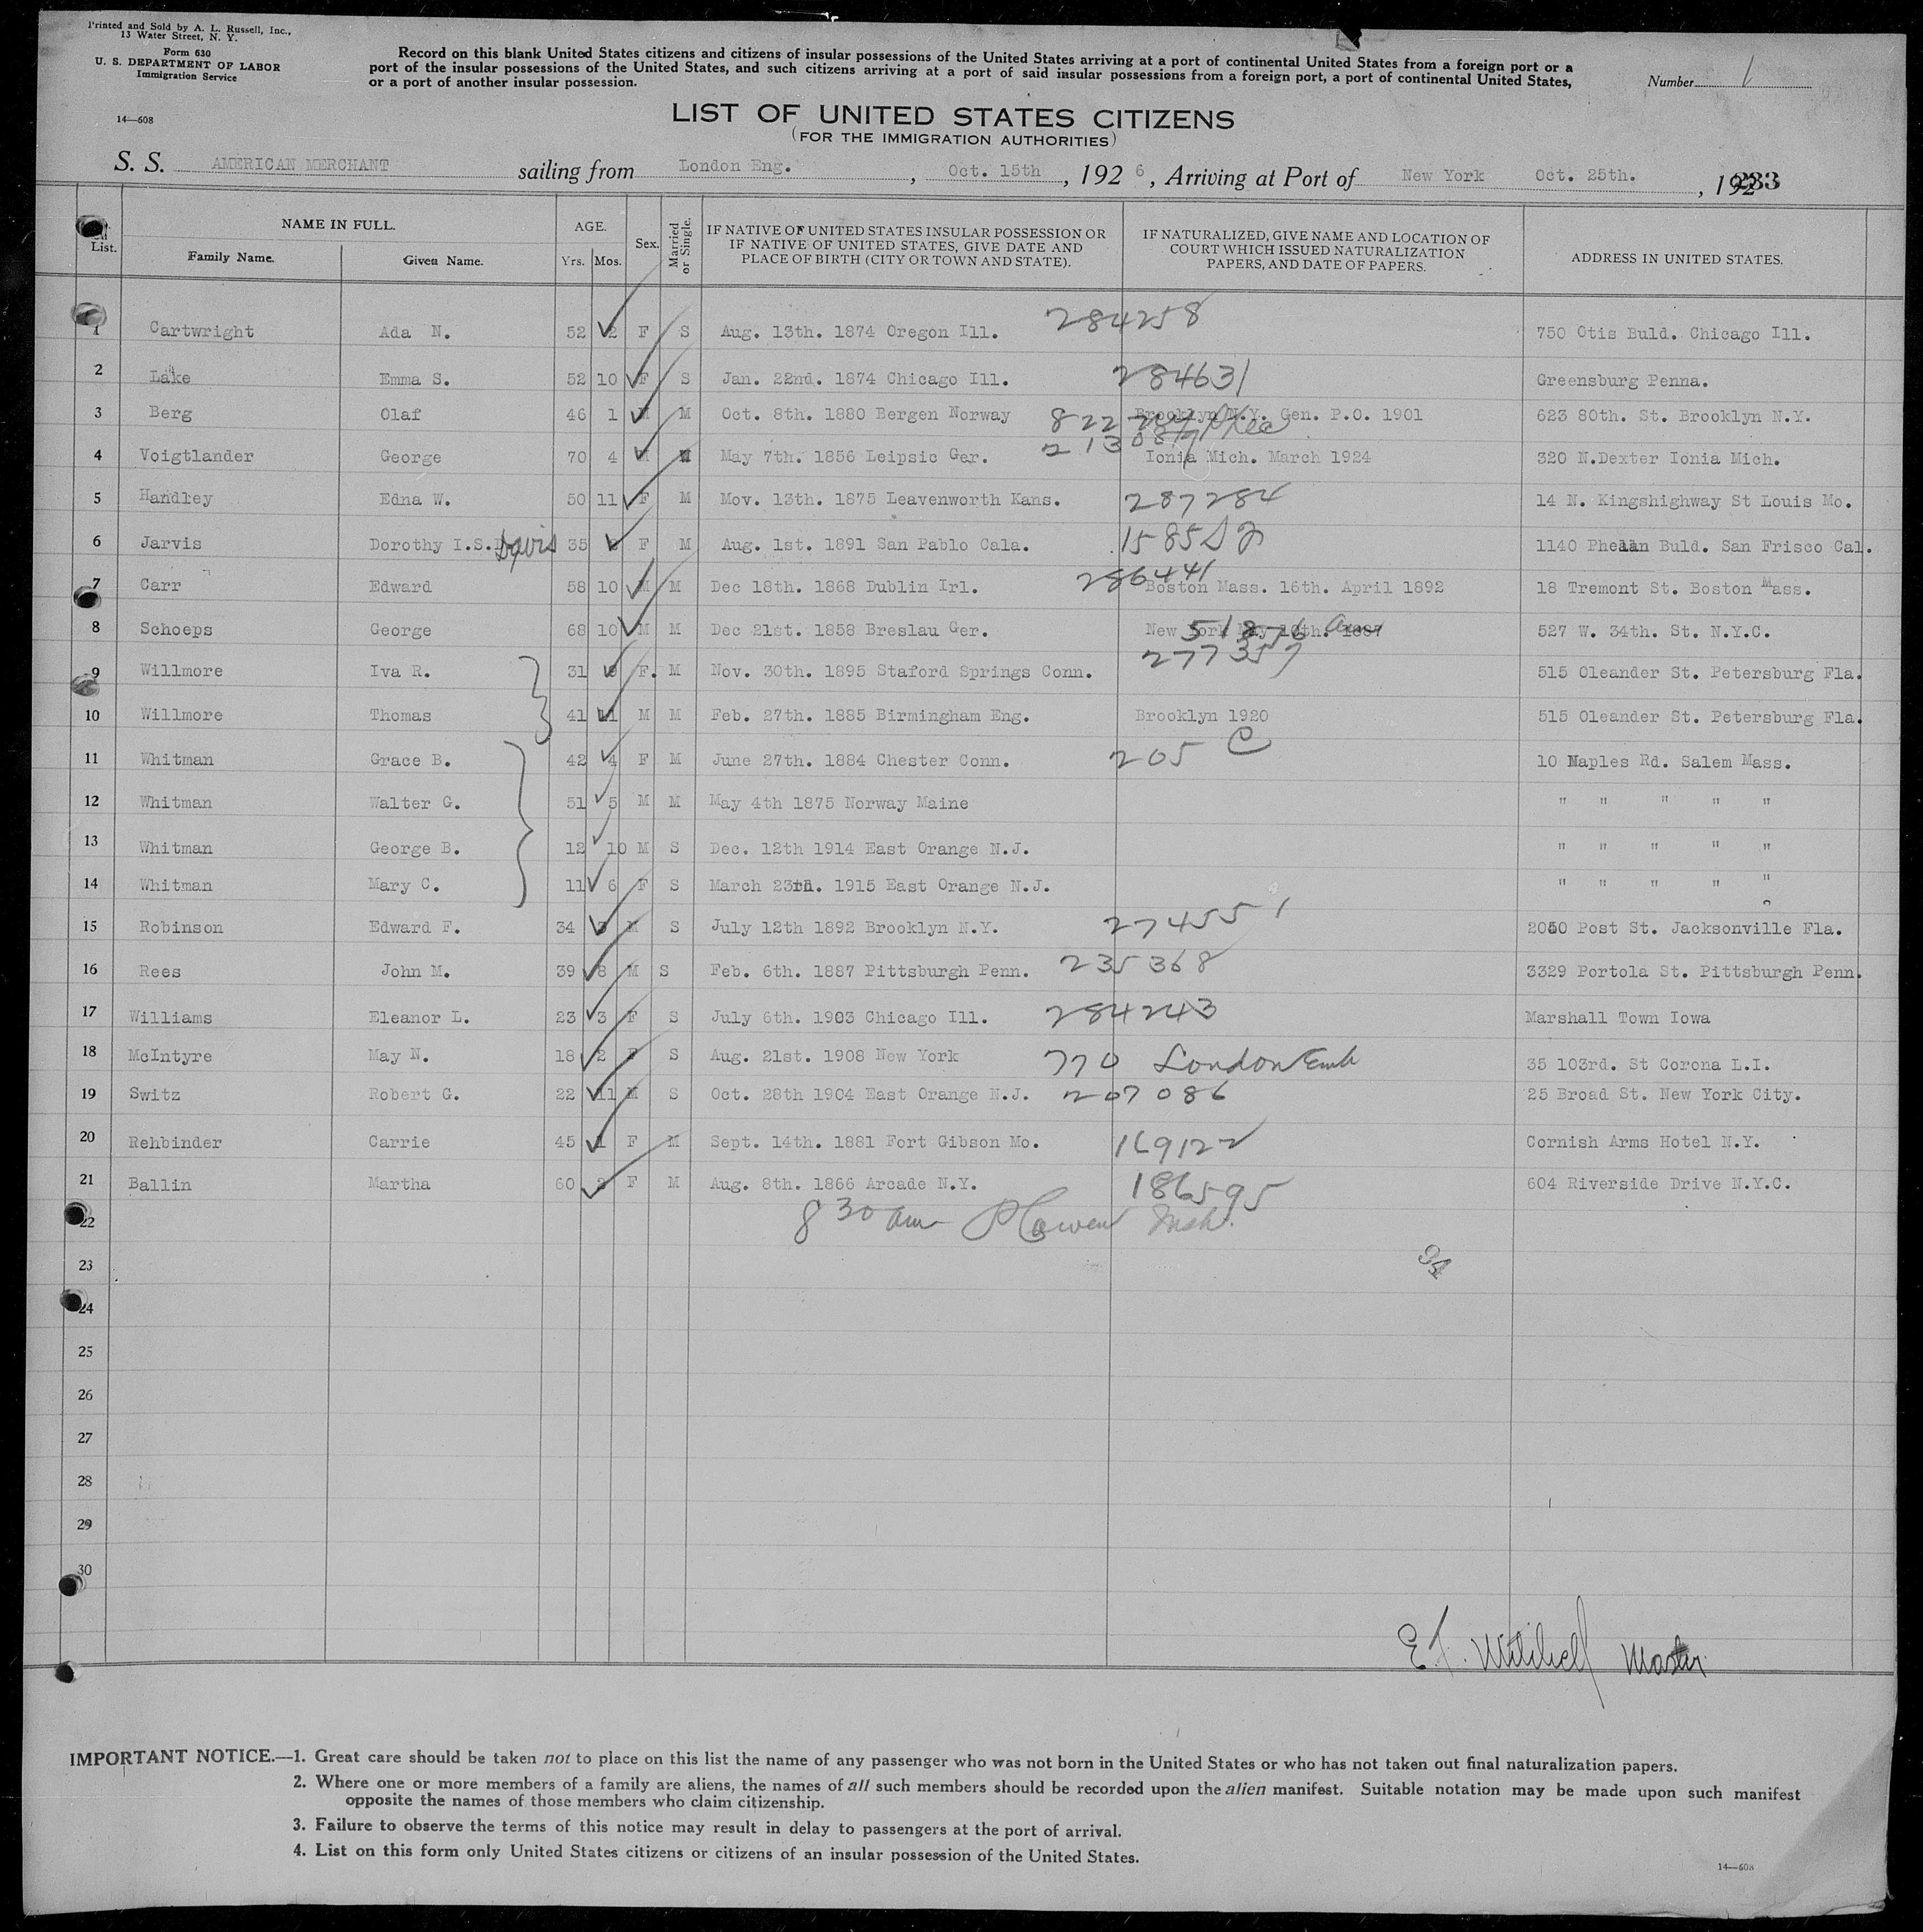 Printed and Sold by A. L. Russell, Inc.,
13 Water Street, N. Y.
Form 630
U. S. DEPARTMENT OF LABOR
Immigration Service
14—608
Record on this blank United States citizens and citizens of insular possessions of the United States arriving at a port of continental United States from a foreign port or a
port of the insular possessions of the United States, and such citizens arriving at a port of said insular possessions from a foreign port, a port of continental United States,
or a port of another insular possession.
Number 1
LIST OF UNITED STATES CITIZENS
(FOR THE IMMIGRATION AUTHORITIES)
S. S. AMERICAN MERCHANT sailing from London Eng. , Oct. 15th , 192 6 , Arriving at Port of New York Oct. 25th. , 192 233
List. NAME IN FULL. Family Name. Given Name. AGE. Yrs. Mos. Sex. Married or Single.
IF NATIVE OF UNITED STATES INSULAR POSSESSION OR
IF NATIVE OF UNITED STATES, GIVE DATE AND
PLACE OF BIRTH (CITY OR TOWN AND STATE).
IF NATURALIZED, GIVE NAME AND LOCATION OF
COURT WHICH ISSUED NATURALIZATION
PAPERS, AND DATE OF PAPERS.
ADDRESS IN UNITED STATES.
1 Cartwright Ada N. 52 2 F S Aug. 13th. 1874 Oregon Ill. 284258 750 Otis Buld. Chicago Ill.
2 Lake Emma S. 52 10 F S Jan. 22nd. 1874 Chicago Ill. 284631 Greensburg Penna.
3 Berg Olaf 46 1 M M Oct. 8th. 1880 Bergen Norway 822 Brooklyn N.Y. Gen. P.O. 1901 623 80th. St. Brooklyn N.Y.
4 Voigtlander George 70 4 M M May 7th. 1856 Leipsic Ger. Ionia Mich. March 1924 320 N.Dexter Ionia Mich.
5 Handley Edna W. 50 11 F M Mov. 13th. 1875 Leavenworth Kans. 287284 14 N. Kingshighway St Louis Mo.
6 Jarvis Dorothy I.S. Davis 35 2 F M Aug. 1st. 1891 San Pablo Cala. 1585 1140 Phelan Buld. San Frisco Cal.
7 Carr Edward 58 10 M M Dec 18th. 1868 Dublin Irl. 286441 Boston Mass. 16th. April 1892 18 Tremont St. Boston Mass.
8 Schoeps George 68 10 M M Dec 21st. 1858 Breslau Ger. New York May 10th. 1887 51876 527 W. 34th. St. N.Y.C.
9 Willmore Iva R. 31 F. M Nov. 30th. 1895 Staford Springs Conn. 277357 515 Oleander St. Petersburg Fla.
10 Willmore Thomas 41 11 M M Feb. 27th. 1885 Birmingham Eng. Brooklyn 1920 515 Oleander St. Petersburg Fla.
11 Whitman Grace B. 42 4 F M June 27th. 1884 Chester Conn. 205 C 10 Naples Rd. Salem Mass.
12 Whitman Walter G. 51 5 M M May 4th 1875 Norway Maine " " " " "
13 Whitman George B. 12 10 M S Dec. 12th 1914 East Orange N.J. " " " " "
14 Whitman Mary C. 11 6 F S March 23. 1915 East Orange N.J. " " " " "
15 Robinson Edward F. 34 3 M S July 12th 1892 Brooklyn N.Y. 274551 Post St. Jacksonville Fla.
16 Rees John M. 39 8 M S Feb. 6th. 1887 Pittsburgh Penn. 235368 3329 Portola St. Pittsburgh Penn.
17 Williams Eleanor L. 23 3 F S July 6th. 1903 Chicago Ill. 284243 Marshall Town Iowa
18 McIntyre May N. 18 2 F S Aug. 21st. 1908 New York 770 London Emb 35 103rd. St Corona L.I.
19 Switz Robert G. 22 11 M S Oct. 28th 1904 East Orange N.J. 207086 25 Broad St. New York City.
20 Rehbinder Carrie 45 1 F M Sept. 14th. 1881 Fort Gibson Mo. 169122 Cornish Arms Hotel N.Y.
21 Ballin Martha 60 2 F M Aug. 8th. 1866 Arcade N.Y. 186595 604 Riverside Drive N.Y.C.
22 8 30 am
23
24
25
26
27
28
29
30
E. F. Mitchell Master
IMPORTANT NOTICE.—1. Great care should be taken not to place on this list the name of any passenger who was not born in the United States or who has not taken out final naturalization papers.
2. Where one or more members of a family are aliens, the names of all such members should be recorded upon the alien manifest. Suitable notation may be made upon such manifest
opposite the names of those members who claim citizenship.
3. Failure to observe the terms of this notice may result in delay to passengers at the port of arrival.
4. List on this form only United States citizens or citizens of an insular possession of the United States.
14—608